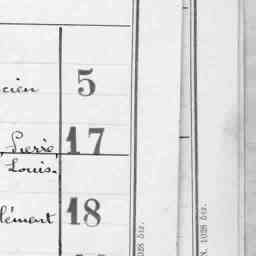 cien 5
Pierre, 17
Louis.
lément 18
028 biz.
N. 1028 biz.